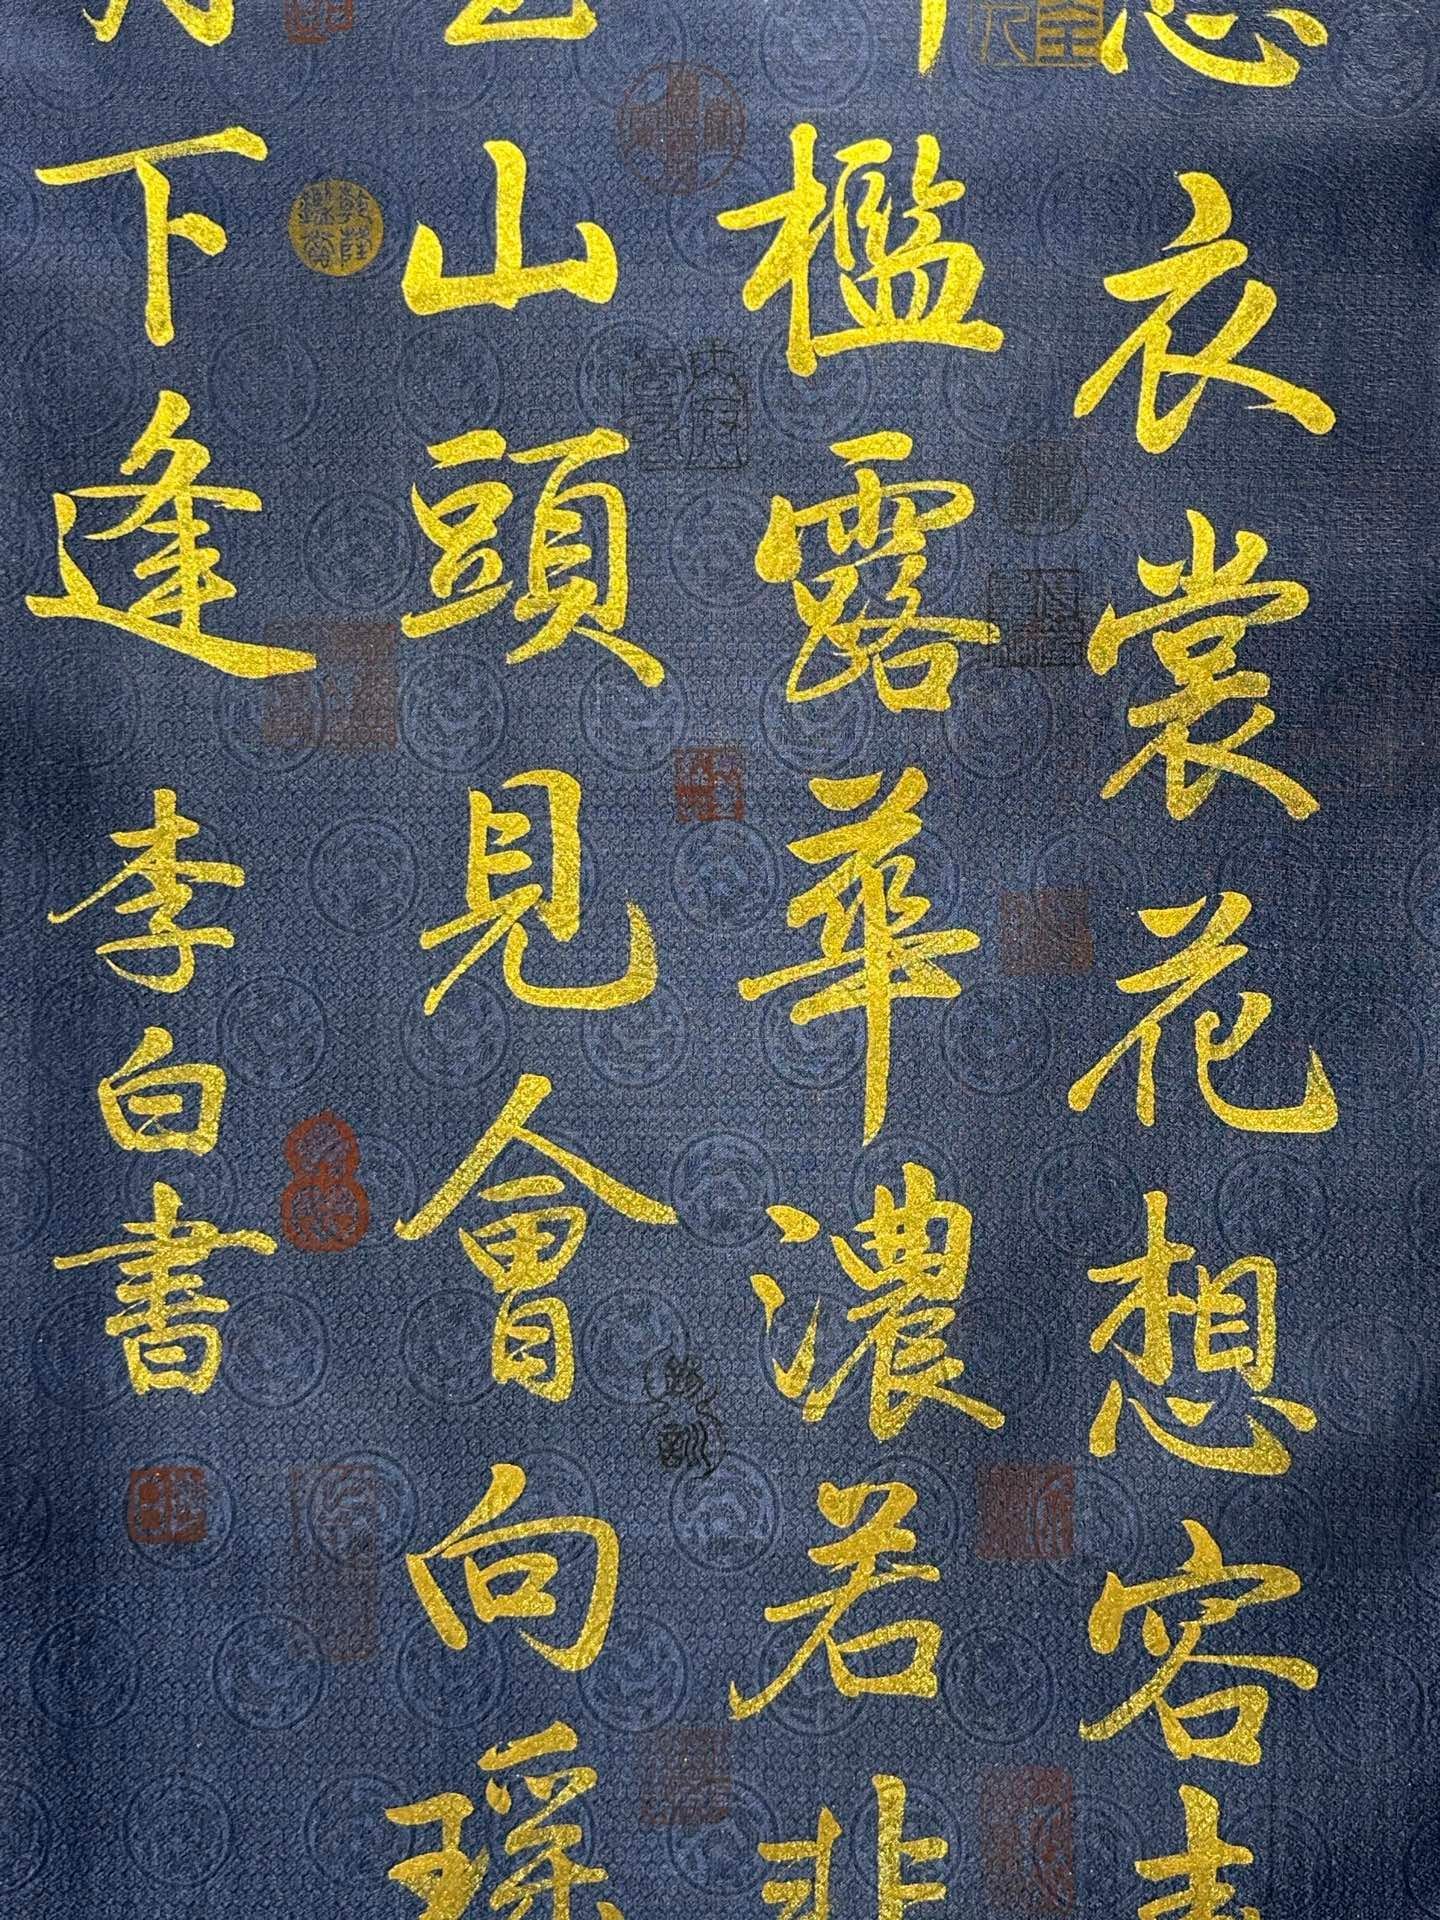 衣裳花想容春
檻露華濃若非
山頭見會向瑤
下逢 李白書